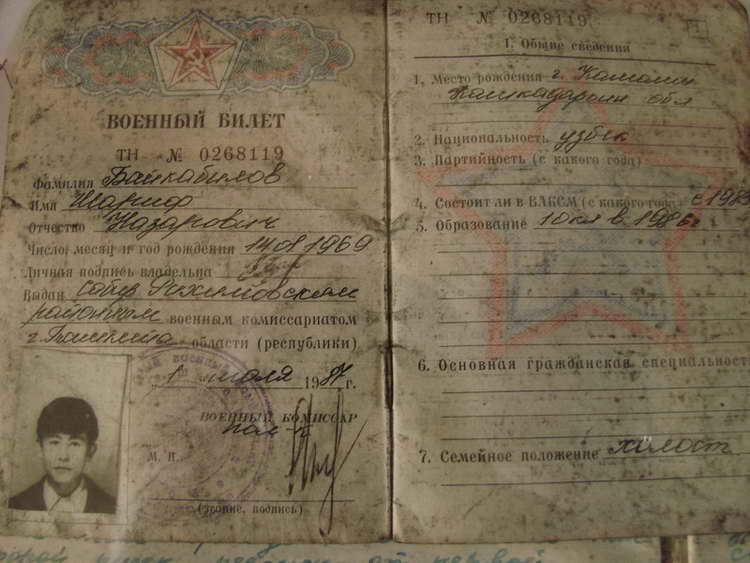 ВОЕННЫЙ БИЛЕТ
ТН № 0268119
Фамилия Байкабилов
Имя Шариф
Отчество Назарович
Число, месяц и год рождения 14 01 1969
Личная подпись владельца
Выдан Сабир Рахимовским
районным военным комиссариатом
г. Ташкента области (республики)
1 июля 1987 г.
ВОЕННЫЙ КОМИССАР
М. П.
(звание, подпись)
ТН № 0268119
1. Общие сведения
1. Место рождения г.
Кашкадарьин обл
2. Национальность узбек
3. Партийность (с какого года)
4. Состоит ли в ВЛКСМ (с какого года) с 1983
5. Образование 10 кл в 1986 г
6. Основная гражданская специальност
7. Семейное положение холост